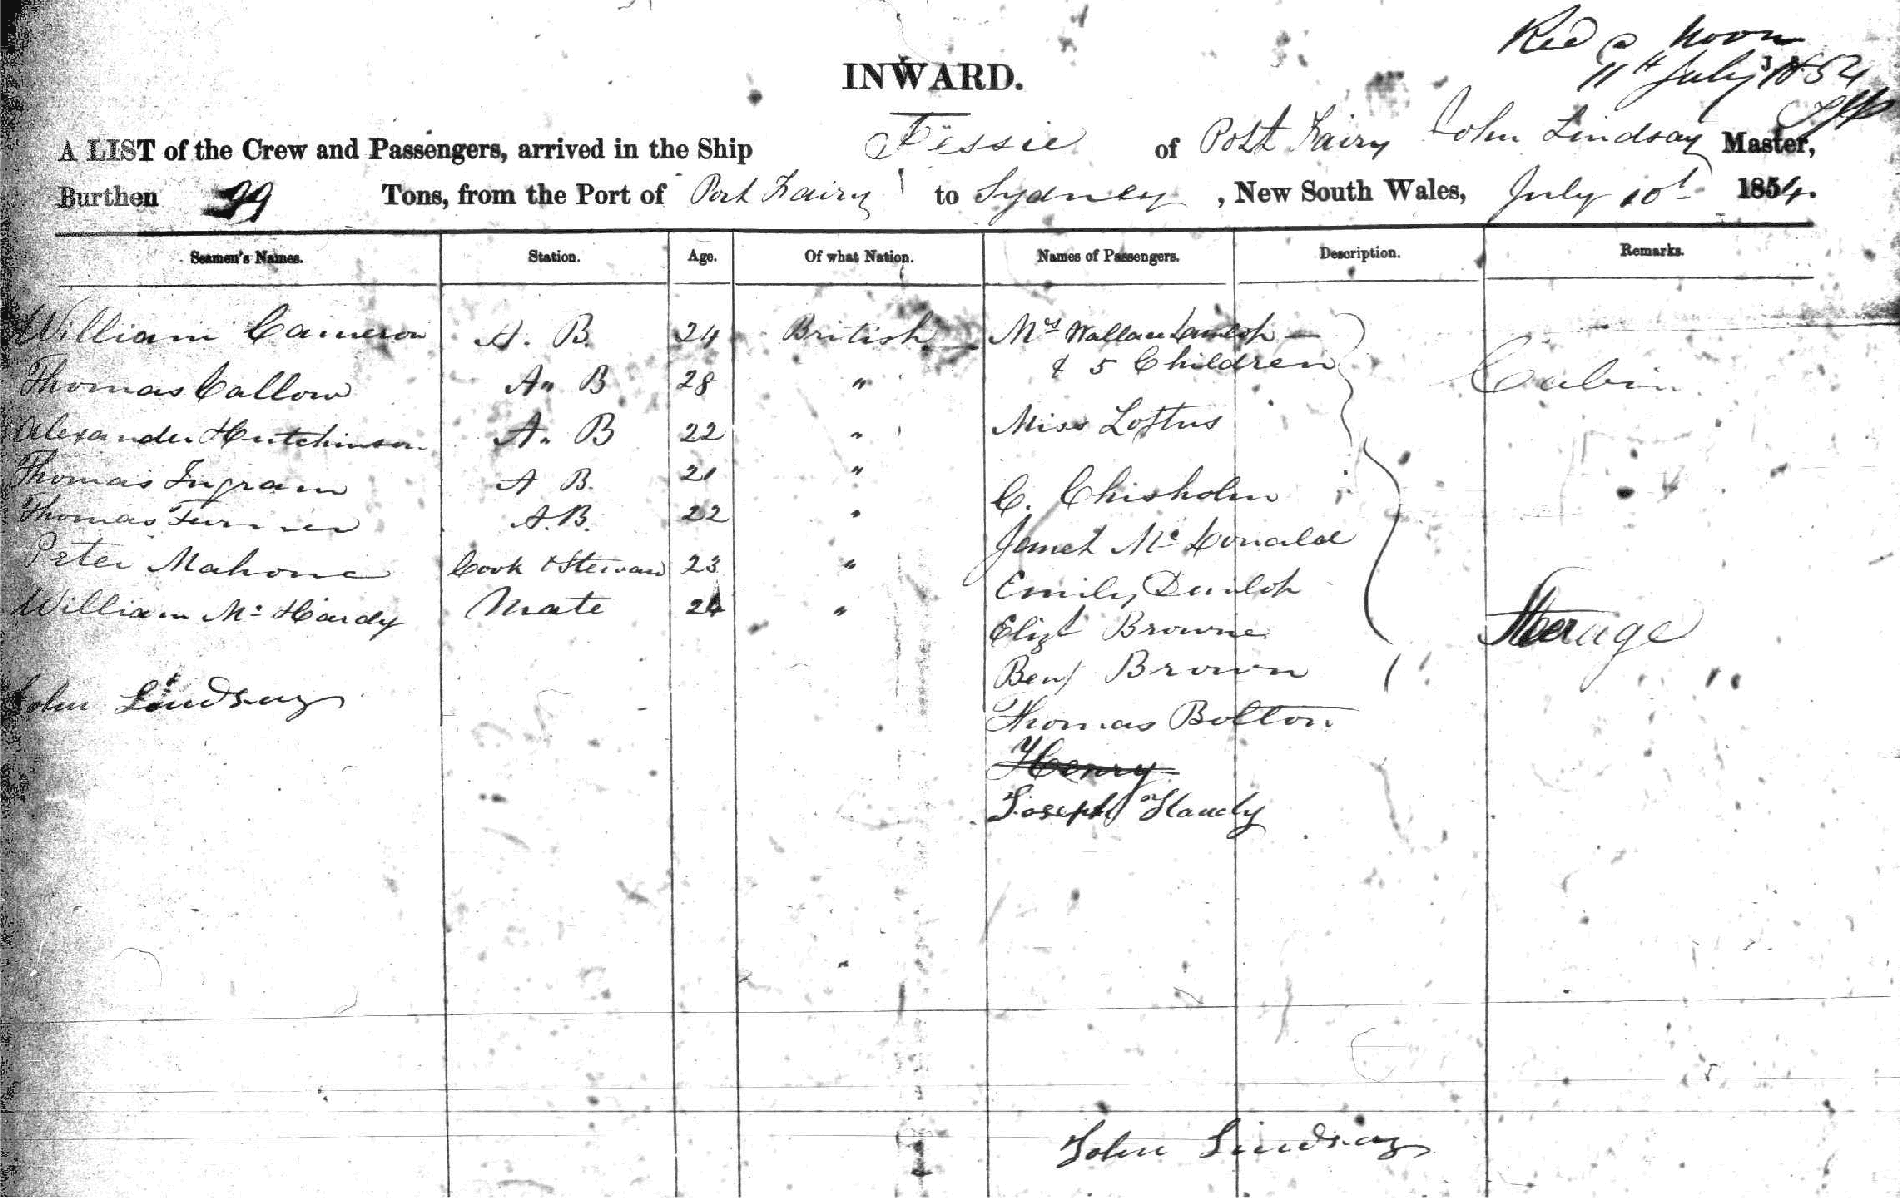 Recd @ Noon
11th July 1854
INWARD.
A LIST of the Crew and Passengers, arrived in the Ship Tessie of Port Fairy John Lindsay Master,
Burthen 99 Tons, from the Port of Port Fairy to Sydney, New South Wales, July 10th 1854.
Seamen's Names. Station. Age. Of what Nation. Names of Passengers. Description. Remarks.
William Cameron A. B. 24 British Mrs Wallace Dunlop
& 5 Children Cabin
Thomas Callow A" B 28 "
Alexander Hutchinson A" B 22 " Miss Loftus
Thomas Ingram A B. 21 " C. Chisholm
Thomas Turner A.B. 22 " Janet Mc Donald
Peter Mahone Cook & Steward 23 " Emily Dunlop
William Mc Hardy Mate 24 " Elizt Browne Steerage
Benj Brown
John Lindsay Thomas Bolton
Henry
Joseph Handy
John Lindsay